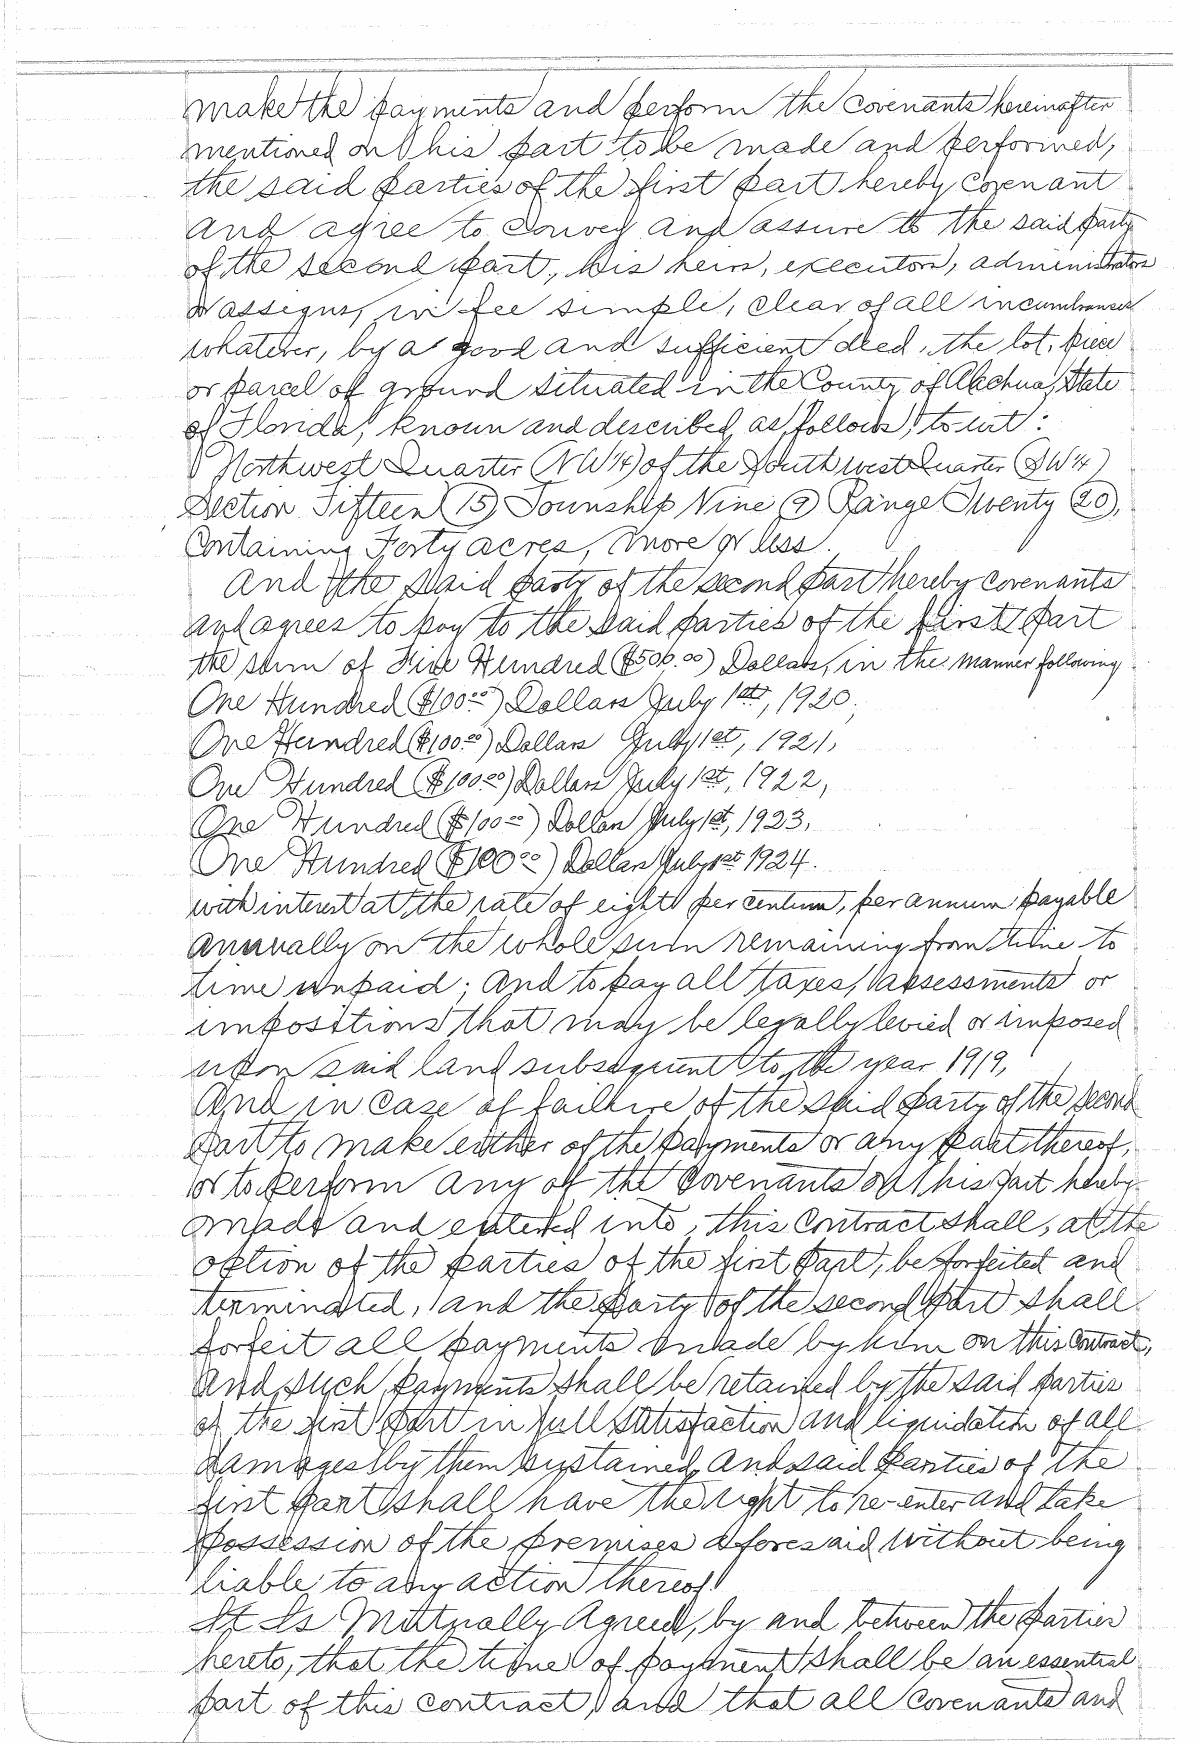 make the payments and perform the covenants hereinafter
mentioned on his part to be made and performed,
the said parties of the first part hereby covenant
and agree to convey and assure to the said party
of the second part, his heirs, executors, administrators
or assigns, in fee simple, clear of all incumbrances
whatever, by a good and sufficient deed, the lot, piece
or parcel of ground situated in the County of Alachua, State
of Florida, known and described as follows, to-wit:
Northwest Quarter (NW¼) of the Southwest Quarter (SW¼)
Section Fifteen (15) Township Nine (9) Range Twenty (20),
Containing Forty acres, more or less.
And the said party of the second part hereby covenants
and agrees to pay to the said parties of the first part
the sum of Five Hundred ($500.00) Dollars, in the manner following
One Hundred ($100.00) Dollars July 1st, 1920,
One Hundred ($100.00) Dollars July 1st, 1921,
One Hundred ($100.00) Dollars July 1st, 1922,
One Hundred ($100.00) Dollars July 1st, 1923,
One Hundred ($100.00) Dollars July 1st 1924.
with interest at the rate of eight per centum, per annum payable
annually on the whole sum remaining from time to
time unpaid; and to pay all taxes, assessments or
impositions that may be legally levied or imposed
upon said land subsequent to the year 1919,
And in case of failure of the said party of the second
part to make either of the payments or any part thereof,
or to perform any of the covenants on his part hereby
made and entered into, this contract shall, at the
option of the parties of the first part, be forfeited and
terminated, and the party of the second part shall
forfeit all payments made by him on this contract,
and such payments shall be retained by the said parties
of the first part in full satisfaction and liquidation of all
damages by them sustained, and said parties of the
first part shall have the right to re-enter and take
possession of the premises aforesaid without being
liable to any action thereof.
It Is Mutually Agreed, by and between the parties
hereto, that the time of payment shall be an essential
part of this contract, and that all covenants and